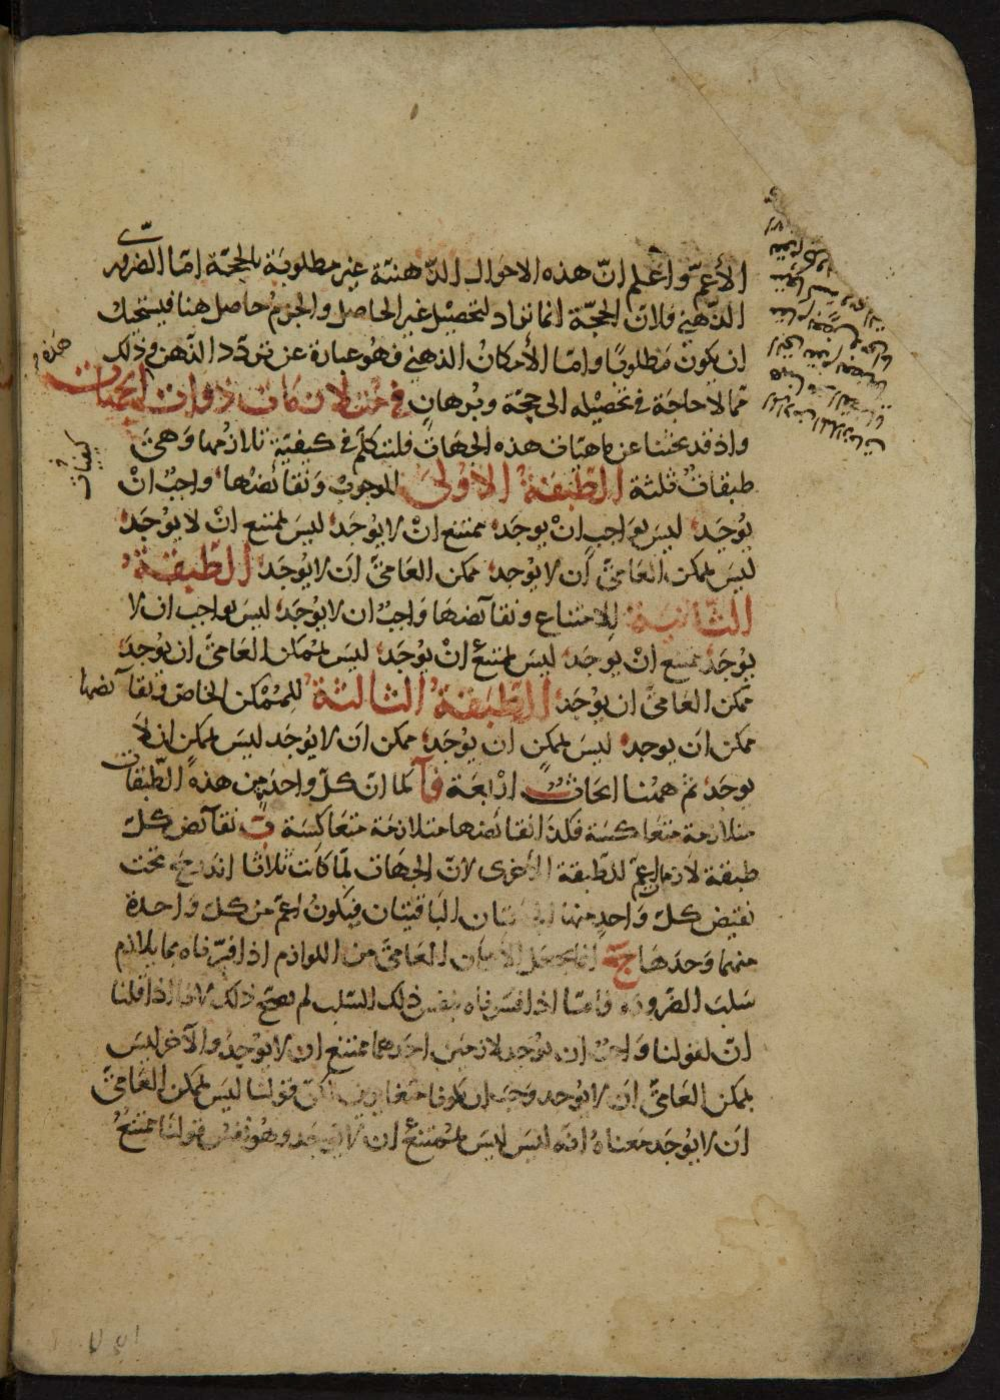 الأعمّ واعلم انّ هذه الاحوال الذّهنيّة غير مطلوبة بالحجّة امّا الضرورىّ
الذّهنىّ فلانّ الحجّة انما تراد لتحصيل غير الحاصل والجزم حاصل هنا فيستحيل
ان يكون مطلوبًا وامّا الأمكان الذهنىّ فهو عبارة عن تردّد الذّهن وذلك
ممّا لا حاجة فى تحصيله الى حجّة وبرهان فى متلازمات ذوات الجهات
واذ قد بحثنا عن ماهيّات هذه الجهات فلنتكلّم فى كيفيّة تلازمها وهى
طبقاتٌ ثلثة الطّبقة الأولى للوجوب ونقائضُها واجبٌ انْ
يوُجَد ليسَ بواجبٍ انْ يوجَد ممتنع انْ لا يوُجَد ليسَ بممتنع انْ لا يوْجَد
ليسَ بممكن العَامىّ أن لا يوُجد ممكن العَامىّ أن لا يوُجَد الطّبقة
الثّانية للامتناع ونقائضهَا وَاجبٌ ان لا يوُجَد ليسَ بواجب ان لا
يوُجَد ممتنع انْ يوجَد ليسَ بممتنعٍ انْ يوْجَد ليسَ بممكن العَامىّ ان يوُجدَ
ممكن العَامىّ ان يوْجَد الطّبقة الثالثة للممكن الخاصّ ونقائضها
ممكن ان يوجد ليسَ بممكنٍ ان يوْجَد ممكن ان لا يوجَد ليسَ بممكن ان لا
يوجَد ثمّ ههُنا ابحاثٌ ارْبعَة آ كما انّ كلّ واحدٍ من هذه الطّبقات
متلازمة متعَاكسَة فكذا نقائضها متلازمَة متعَاكسَة ب نقائض كلّ
طبقة لازم اعمّ للطّبقة الأخرى لانّ الجهَات لمّا كانت ثلاثا اندرجَ تحت
نقيض كلّ وَاحدٍ منها الباقيتان فيكونُ اعمّ من كلّ وَاحدة
منهما وحدَهَا ج انما يجعَل الأمكان العَامىّ من اللوازم اذا فسّرناه بما يلازم
سَلبَ الضّرورة فامّا اذا فسّرناه بنفس ذلك السّلب لم يصحّ ذلك لانّا اذا قلنا
انّ لقولنا وَاجبٌ ان يوْجد لازمين احدهما ممتنع ان لا يوْجدُ والآخر ليسَ
بممكن العَامىّ ان لا يوُجد وَجبَ ان يكونا متغايرين لكنّ قولنا ليسَ بممكن العَامىّ
ان لا يوُجَد مَعناهُ انّه ليسَ ليسَ بممتنعٍ ان لا يوجَد وهُو نفس قولنا ممتنعٌ
هذه
كيفيات